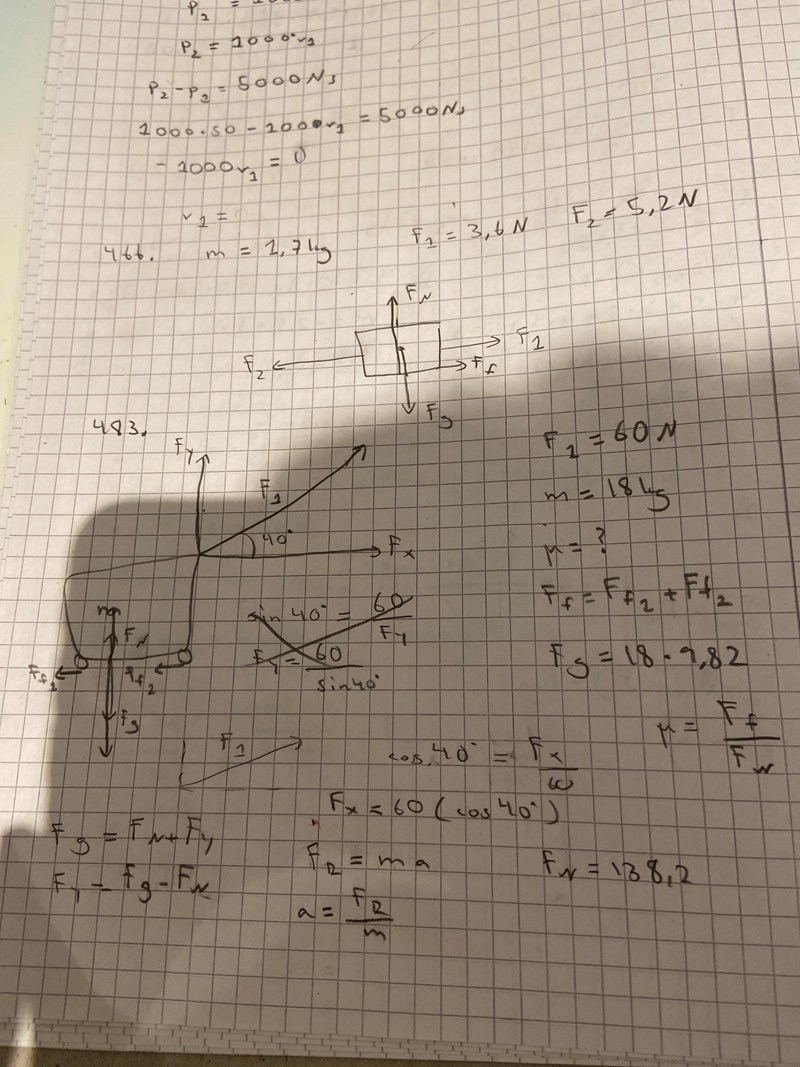 P₂ =
P₂ = 1000·v₁
P₂-P₁ = 5000Ns
1000·50 - 1000v₁ = 5000Ns
- 1000v₁ = 0
v₁ =
466. m = 1,7kg F₁ = 3,6N F₂ = 5,2N
F_N
F₂ F₁
F_f
F_g
483.
F_y F₁ 40° F_x
F₁ = 60N
m = 18kg
μ = ?
F_f = F_f₂ + F_f₂
F_g = 18·9,82
F_N
F_f₁ F_f₂
F_g
sin 40° = 60/F_y
F_y = 60/sin40°
μ = F_f/F_N
F₁
cos 40° = F_x/60
F_x = 60 (cos 40°)
F_g = F_N + F_y
F_y = F_g - F_N
F_R = ma
F_N = 138,2
a = F_R/m